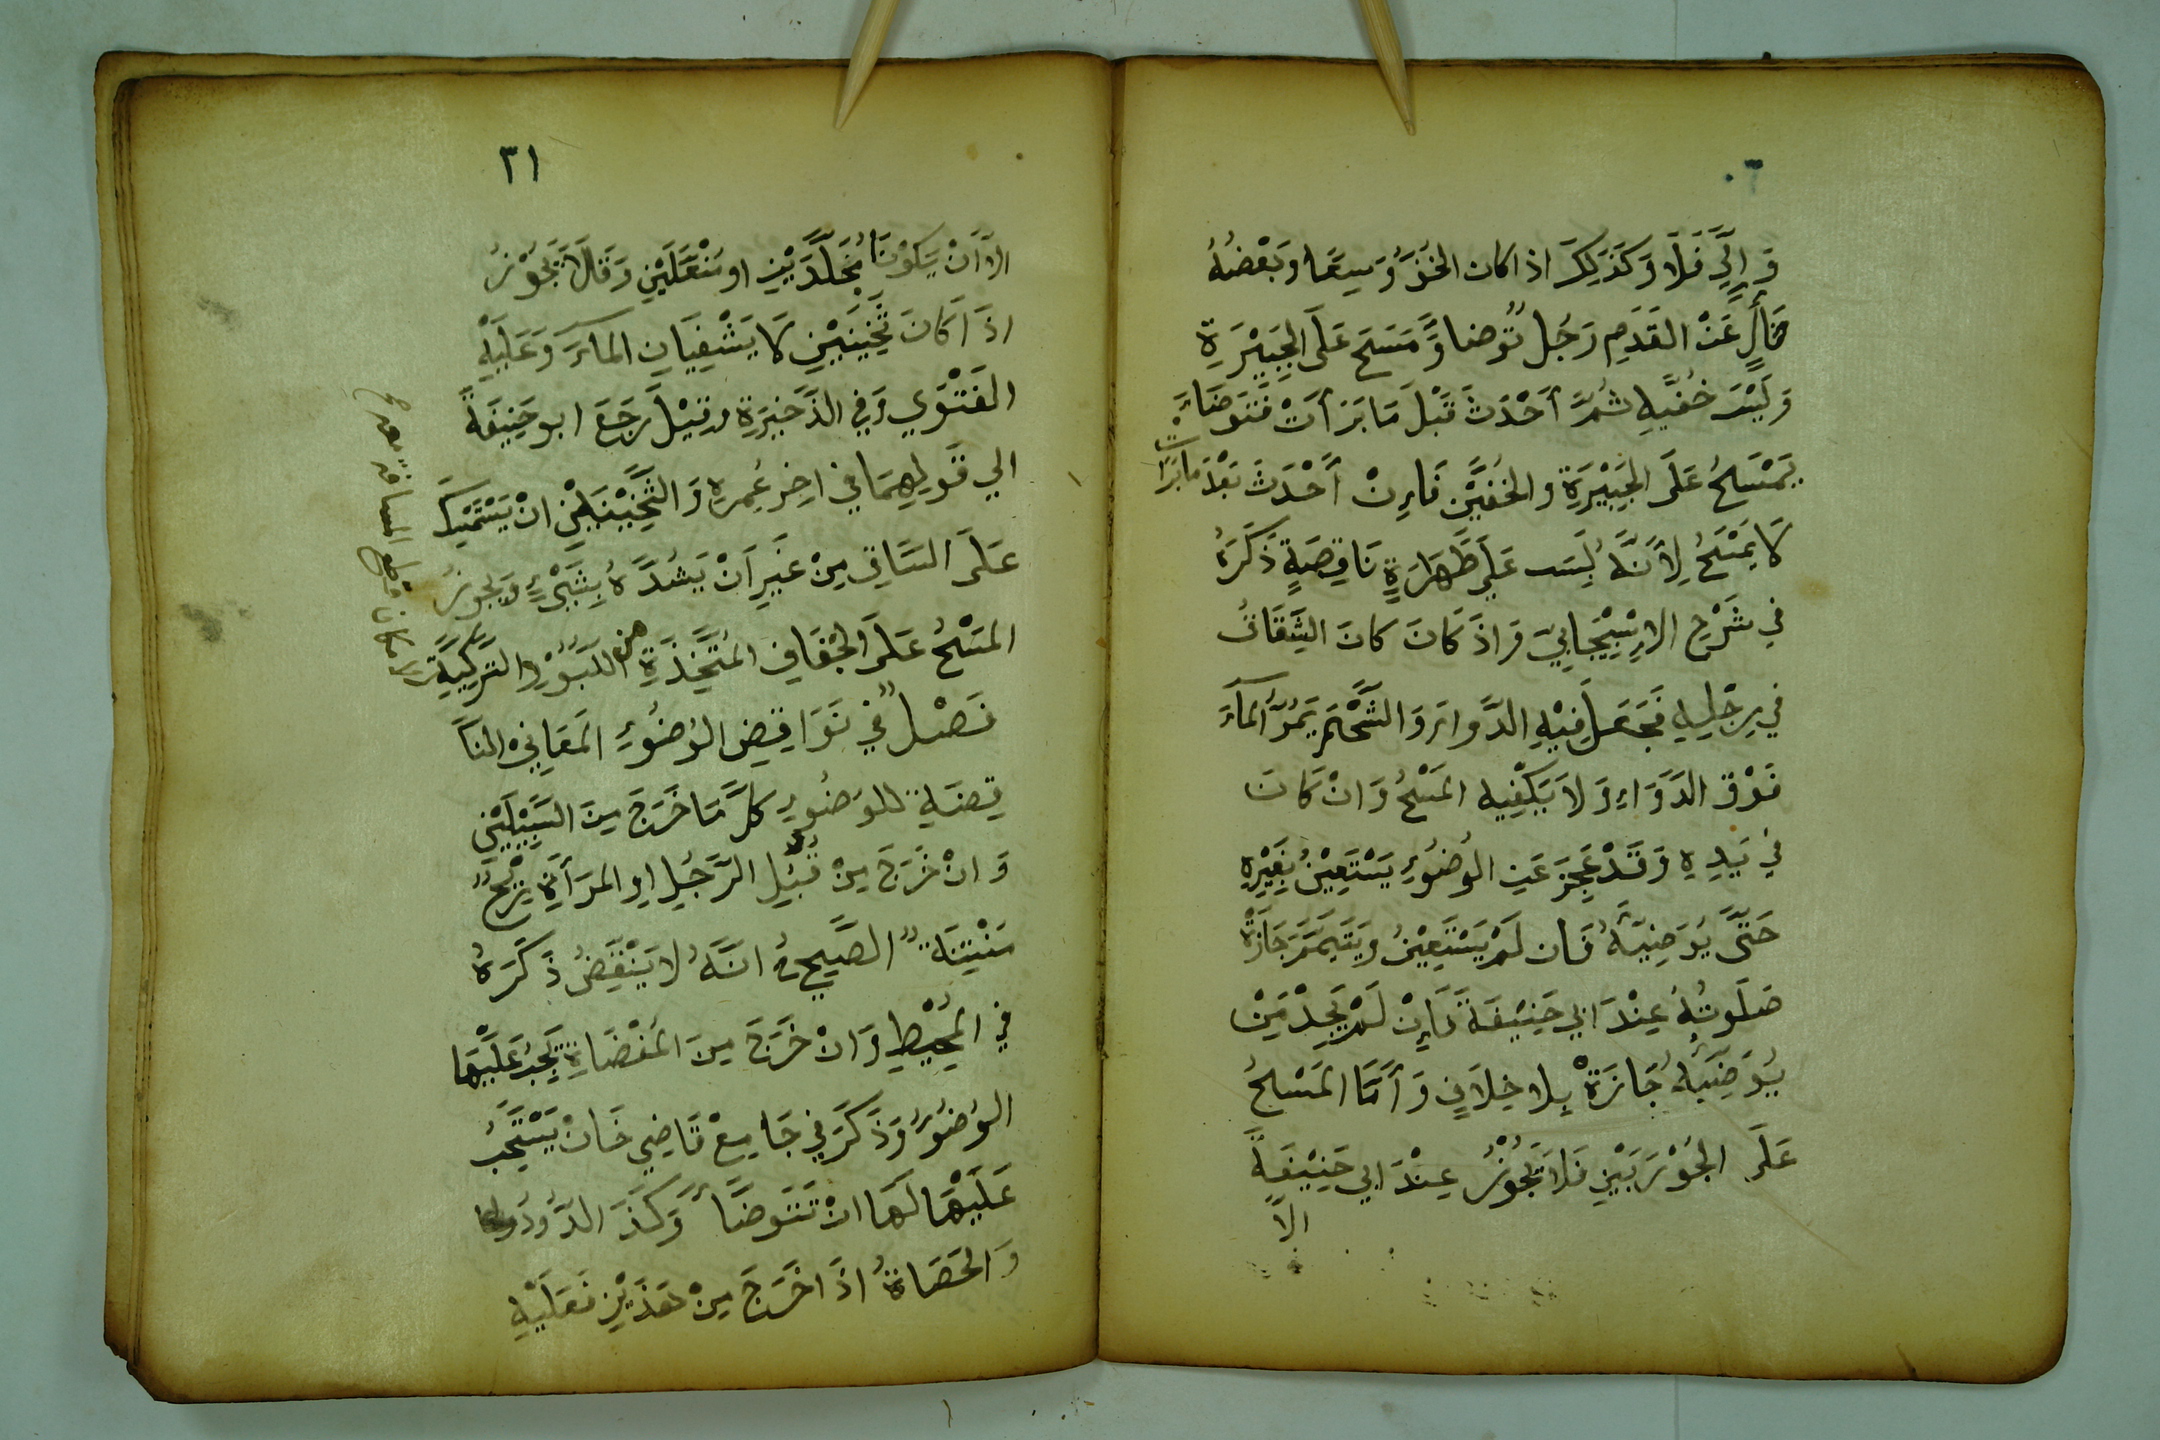 ٣٠
وَ اِلَّا فَلَا وَكَذَلِكَ اذا كان الخُفُّ وَسِيعًا وبَعْضُهُ
خَالٍ عَنْ القَدَمِ رَجُل تُوضا وَّمَسَحَ عَلَى الجَبِيْرَةِ
وَلَبِسَ خُفَّيهِ ثُمَّ أحْدَثَ قَبْلَ مَا بَرَأتْ فَتَوَضَاءَ
يَمْسَحُ عَلَى الجَبِيْرَةِ والخُفَّيْنِ فَاِنْ أحْدَثَ بَعْدَ مابَرَات
لَا يَمْسَحُ لِاَنَّهُ لَبِسَ عَلَى طَهَارَةٍ نَاقِصَةٍ ذَكَرَهُ
في شَرْحِ الاِسْبِيْجَابِيّ وَاذَ كَانَ كانَ الشِقَاقُ
في رِجْلِهِ فَجَعَلَ فِيْهِ الدَّواءَ وَالشَّحْمَ يَمُرُّ المآءَ
فَوْقَ الدَوَاءِ وَلاَ يَكْفِيهِ المَسْحُ وَانْ كَانَ
في يَدِهِ وَقَدْ عَجِزَ عَنِ الوُضُوُءِ يَسْتَعِيْنُ بِغَيْرِهِ
حَتَّى يُوَضِيَهُ فَان لَمْ يَسْتَعِيْنُ ويَتَيَمَّمَ جَازَةْ
صَلَوتُهُ عِنْدَ ابي حَنِيْفَةَ فَاِنْ لَمْ يَجِدْ مَنْ
يُوَضِيَهُ جَازَةْ بِلا خِلاَفٍ وَأمَّا المَسْحُ
عَلَى الجُوْرَبَيْنِ فَلاَ يَجُوْزُ عِنْدَ ابي حَنِيْفَةَ
الاَّ
٣١
الاَّ اَنْ يَكُوْنَا مُجَلَّدَيْنِ او مُنْعَلَيْنِ وَقَالاَ يَجُوْزُ
اذَ اكَانَ ثَخِيْنَيْنِ لَا يَشْفِيَانِ المَاءَ وَعَلَيْهِ
الفَتْوَي وَفي الذَّخِيْرَةِ وقيْلَ رَجَعَ ابو حَنِيفَةَ
الي قَولِهِمَا في اخِرِ عُمِرهِ وَالثَّخِيْنَيْنِ انْ يَسْتَمْسِكَ
عَلَى السَّاقِ مِنْ غَيرِ اَنْ يَشُدَّهُ بِشَيْءٍ وَيجوزُ
المَسْحُ عَلَى الجفَافِ المُتَّخِذَةِ من اللَّبُوْدِ التُّركِيَّةِ
فَصْلٌ في نَوَاقِضِ الوُضُوْءِ المَعَانِي النَّا
قِضَةُ للوُضُوءِ كلُّ مَا خَرَجَ مِنَ السَّبِيْلَيْنِ
وَ انْ خَرَجَ مِنْ قُبُلِ الرَّجُلِ او المَرَأةِ رِيْحٌ
مُنْتِنَةٌ الصَّحِيحُ انَّهُ لا يَنْقُضُ ذَكَرَهُ
في المُحِيْطِ وَانْ خَرَجَ مِنَ المُفْضَاةِ يَجِبُ عَلَيْهَا
الوُضُوُءُ وَذَكَرَ في جَامِعْ قَاضِي خَانْ يَسْتَحِبُّ
عَلَيْهَا لَهَا انْ تَتَوضَّأَ وَكَذَ الدُّودُ
وَالحَصَاةُ اذَ اخَرَجَ مِنْ هَذَيْنِ فَعَلَيْهِ